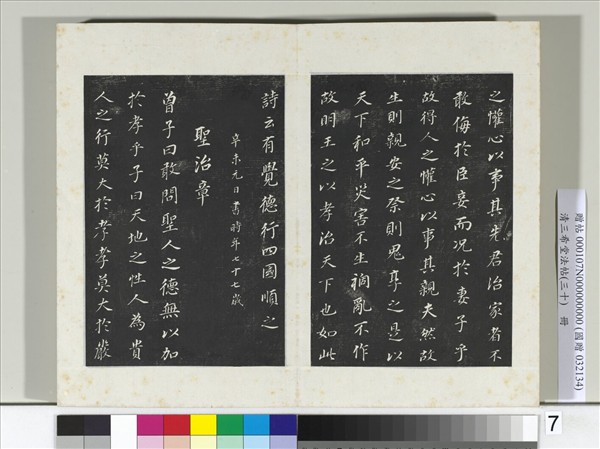 之懽心以事其先君治家者不
敢侮於臣妾而況於妻子乎
故得人之懽心以事其親夫然故
生則親安之祭則鬼享之是以
天下和平災害不生禍亂不作
故明王之以孝治天下也如此
詩云有覺德行四國順之
辛未元日書時年七十七歲
聖治章
曾子曰敢問聖人之德無以加
於孝乎子曰天地之性人為貴
人之行莫大於孝孝莫大於嚴
贈帖 000107N000000000 (國贈 032134)
清三希堂法帖(三十) 冊
7